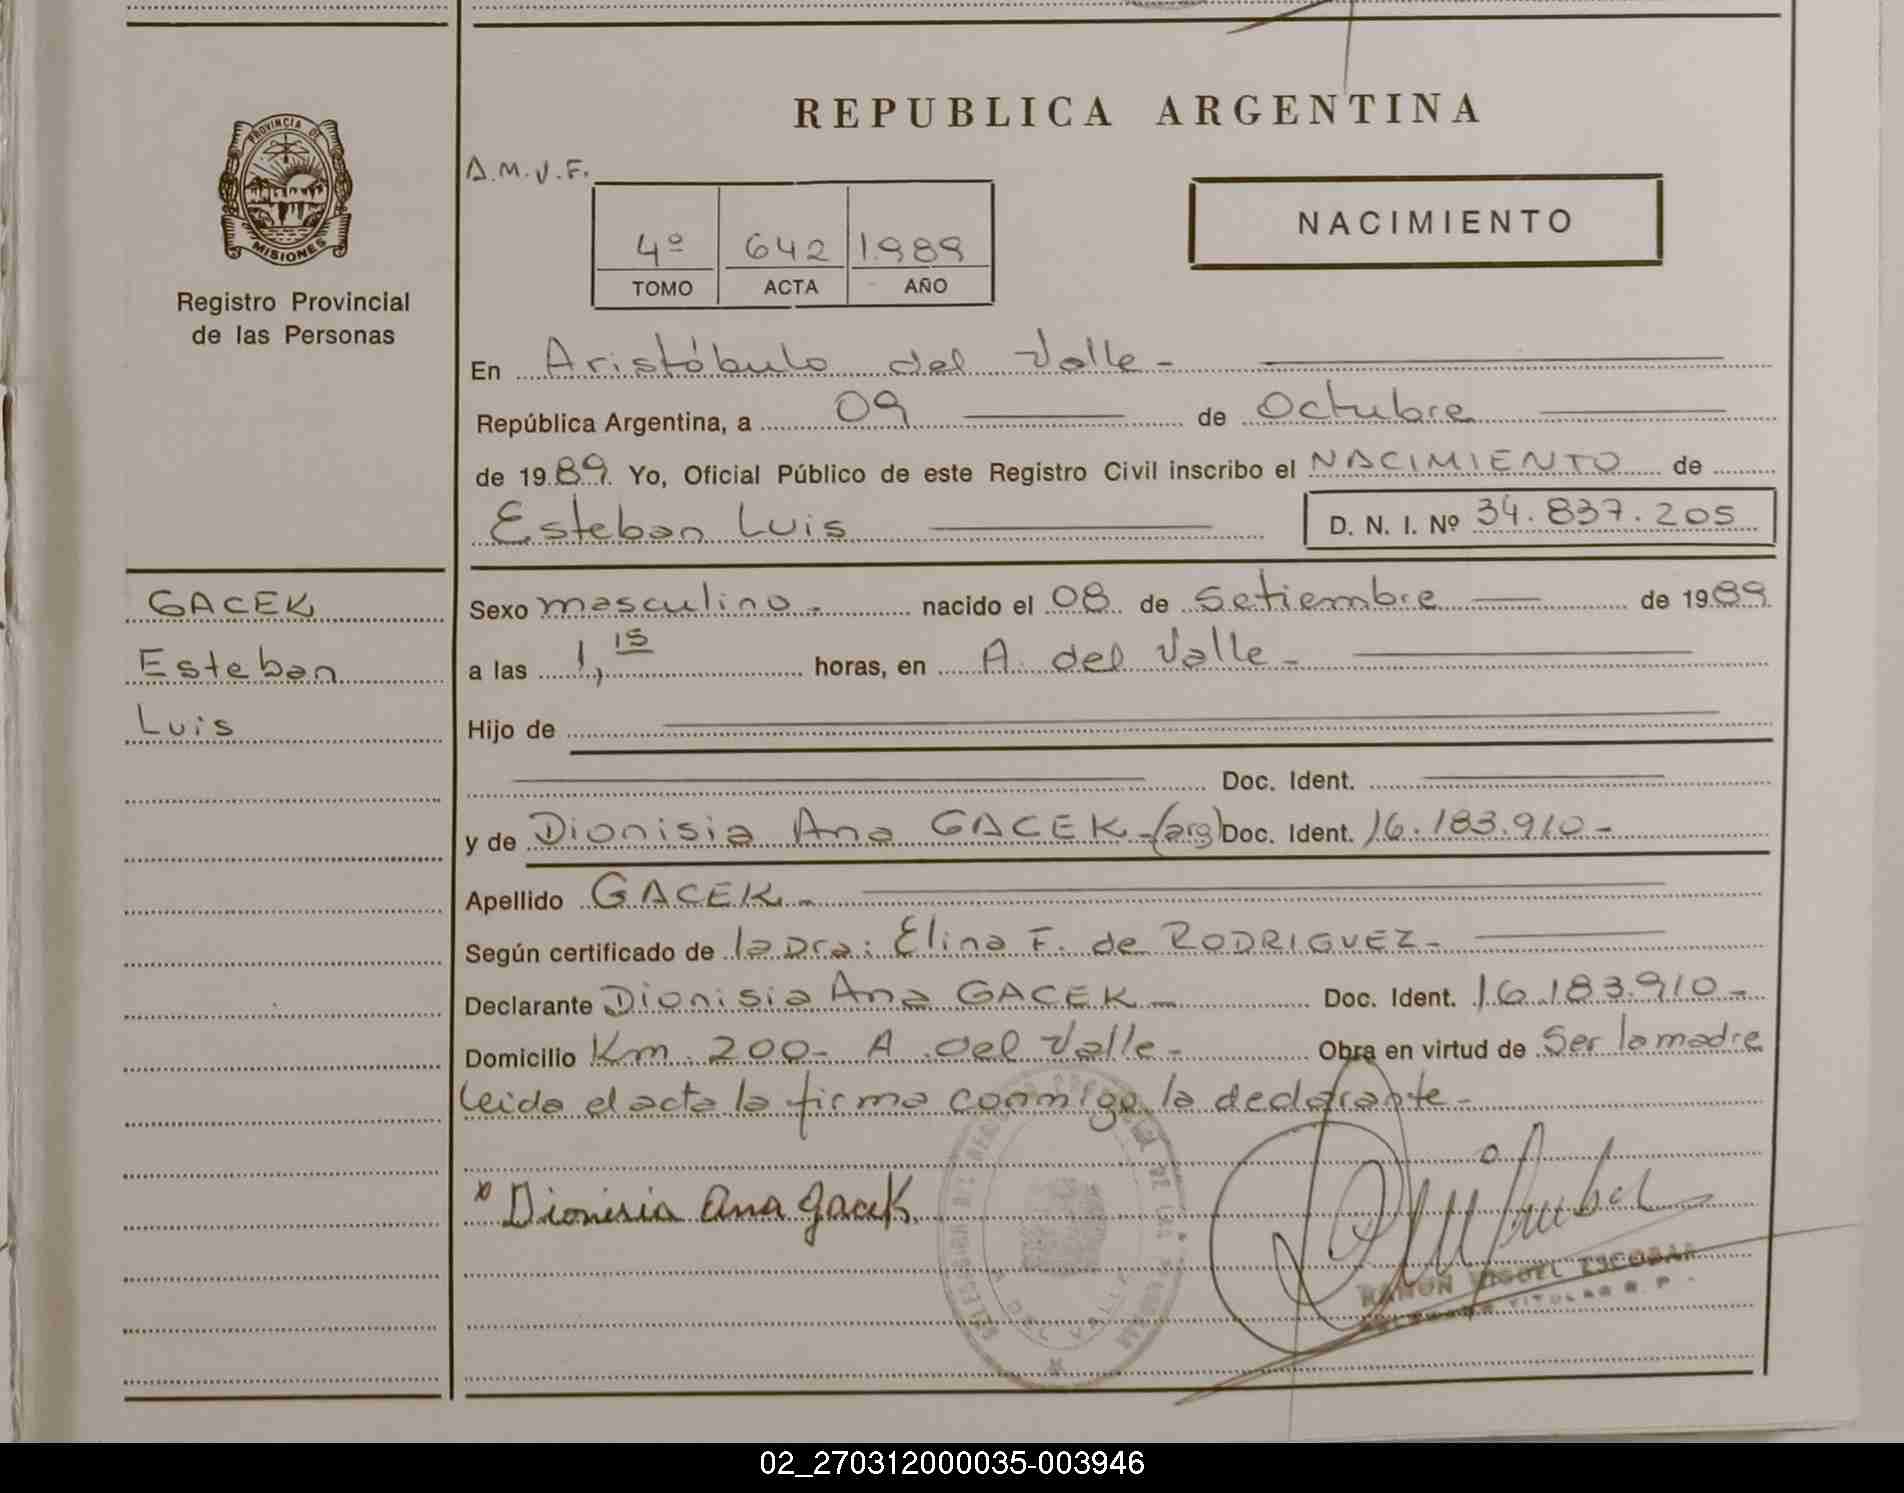 REPUBLICA ARGENTINA
PROVINCIA DE
MISIONES
Registro Provincial
de las Personas
A.M.V.F.
4º 642 1.989
TOMO ACTA AÑO
NACIMIENTO
En Aristóbulo del Valle-
República Argentina, a 09 de Octubre
de 1989. Yo, Oficial Público de este Registro Civil inscribo el NACIMIENTO de
Esteban Luis D. N. I. Nº 34.837.205
GACEK
Esteban
Luis
Sexo masculino.- nacido el 08 de Setiembre de 1989
a las 1,15 horas, en A. del Valle-
Hijo de
Doc. Ident.
y de Dionisia Ana GACEK-(arg) Doc. Ident. 16.183.910-
Apellido GACEK.-
Según certificado de la Dra: Elina F. de RODRIGUEZ-
Declarante Dionisia Ana GACEK- Doc. Ident. 16.183.910-
Domicilio Km. 200- A. del Valle- Obra en virtud de Ser la madre
Leida el acta la firma conmigo la declarante-
Dionisia Ana Gacek
RAMON MIGUEL ESCOBAR
TITULAR R. P.
02_270312000035-003946